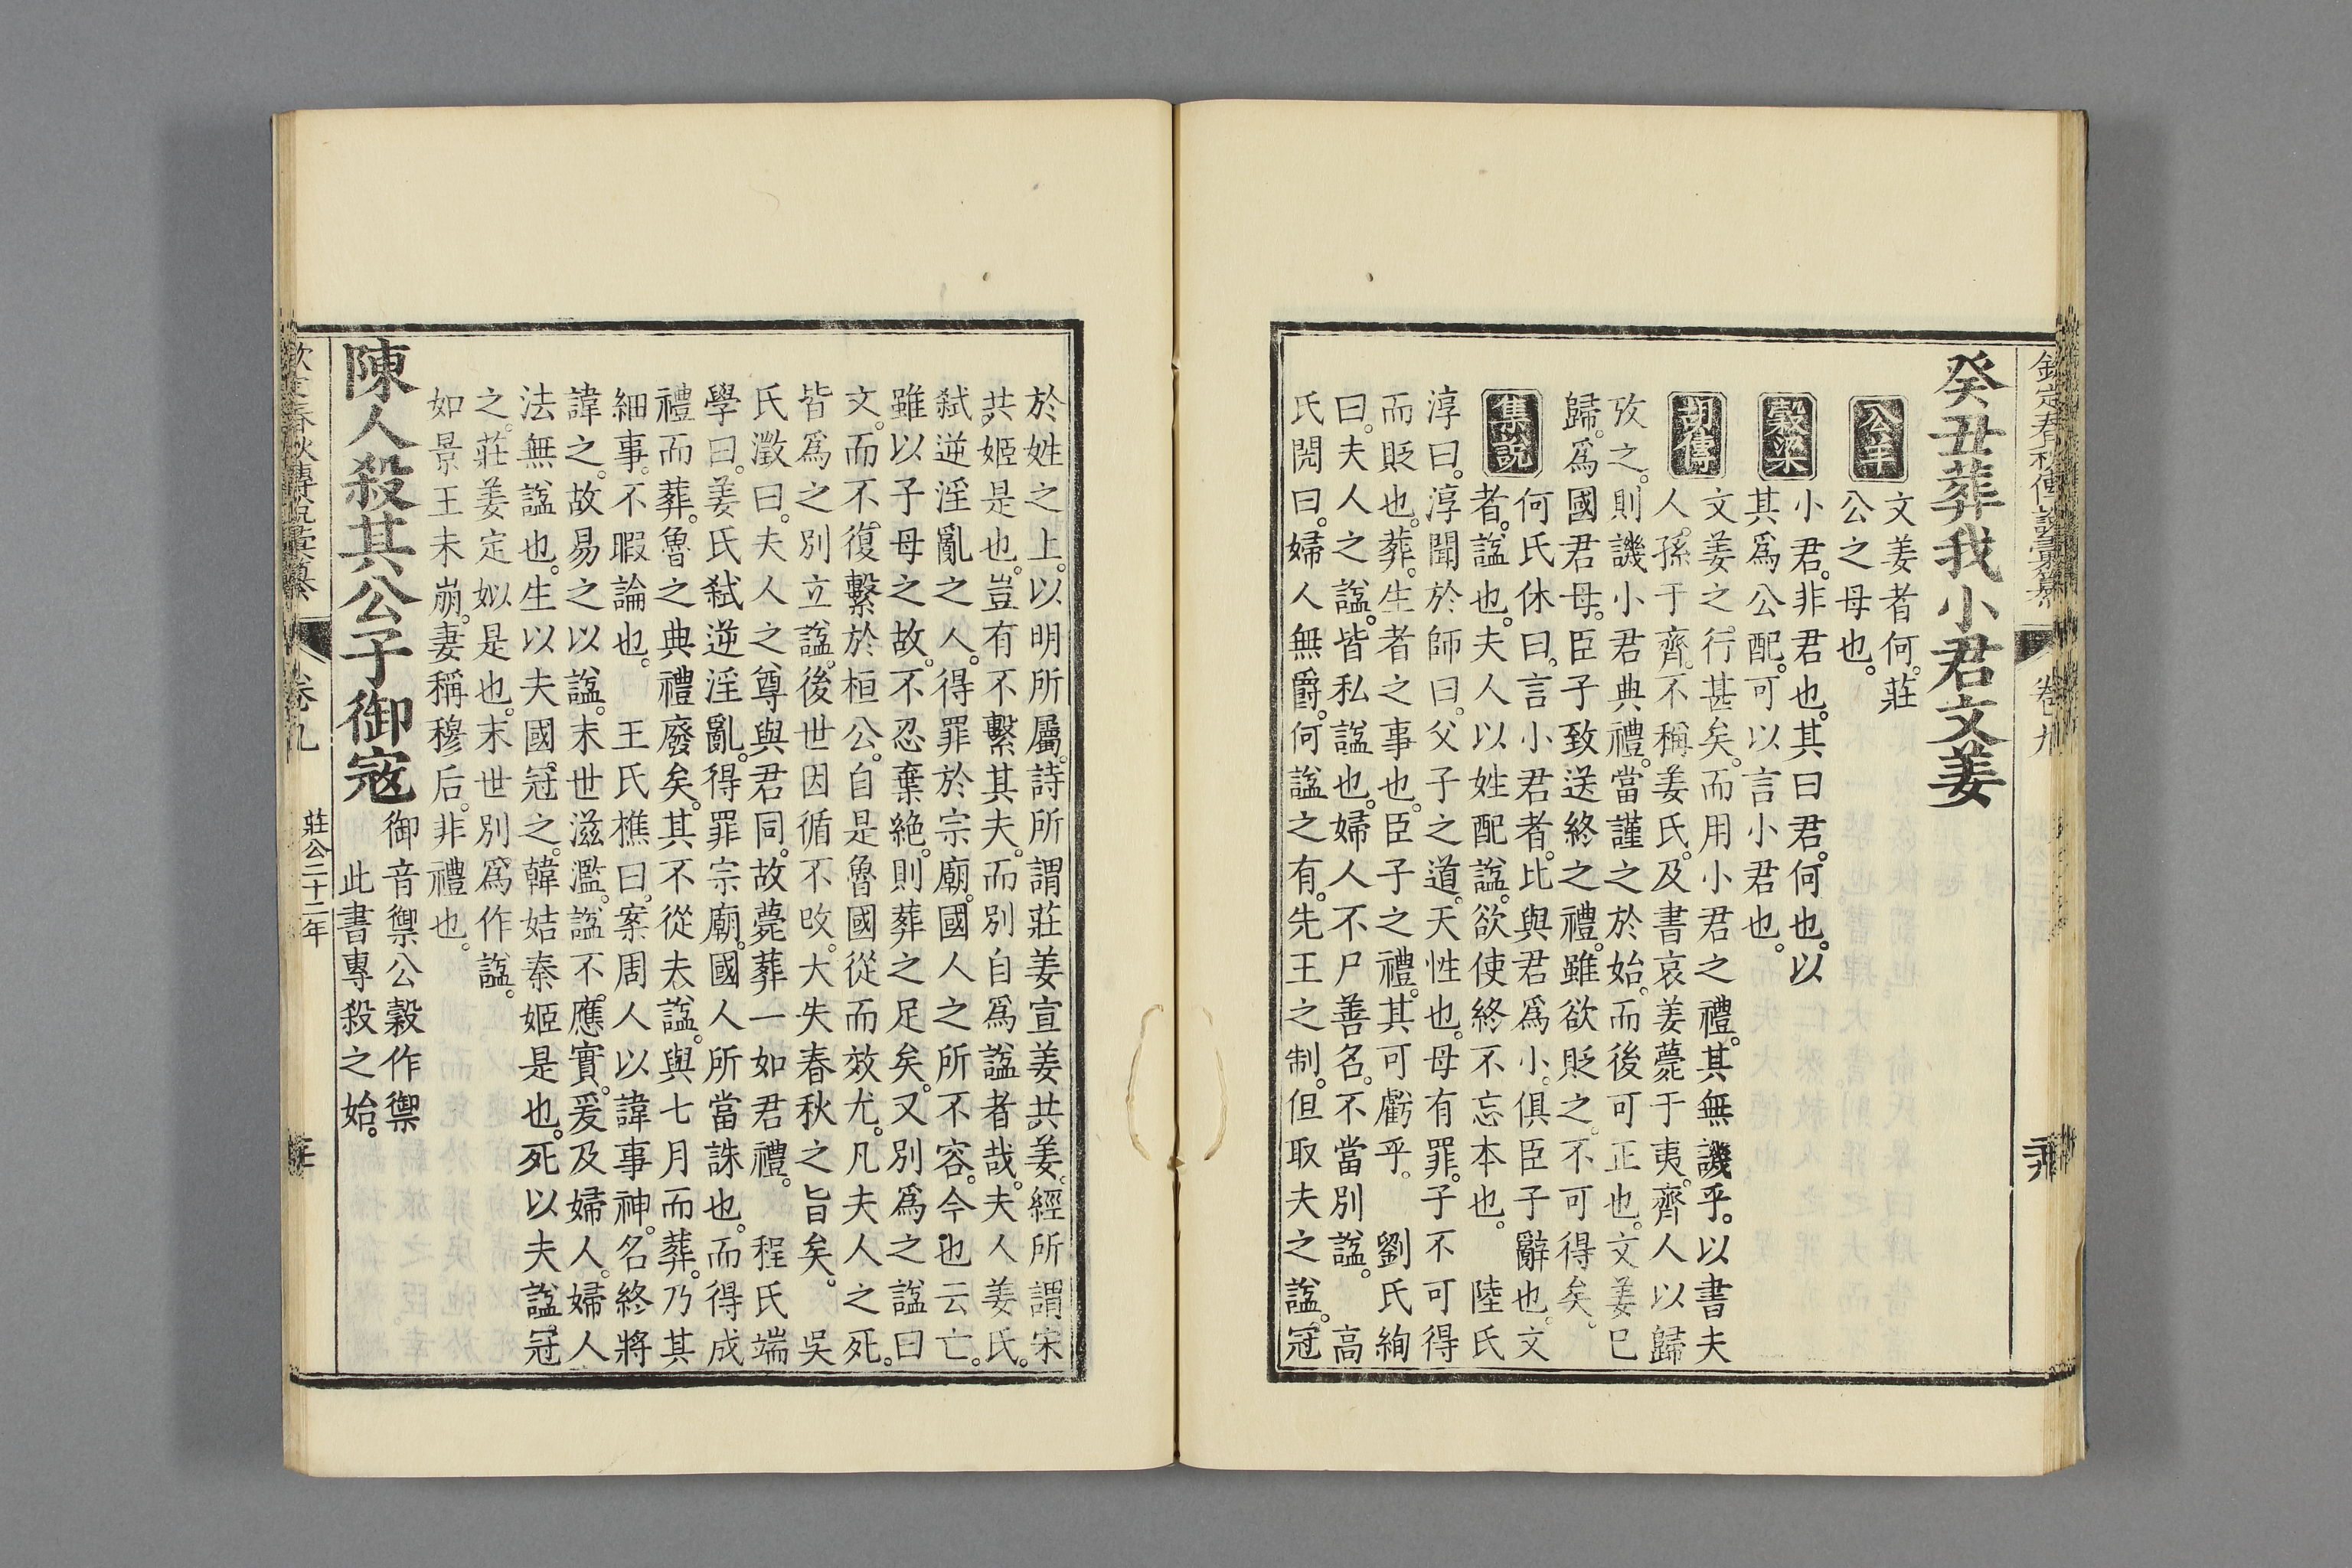 癸丑葬我小君文姜
公羊
文姜者何。莊
公之母也。
穀梁
小君。非君也。其曰君。何也。以
其爲公配。可以言小君也。
胡傳
文姜之行甚矣。而用小君之禮。其無譏乎。以書夫
人。孫于齊。不稱姜氏。及書哀姜薨于夷。齊人以歸
攷之。則譏小君典禮。當謹之於始。而後可正也。文姜巳
歸。爲國君母。臣子致送終之禮。雖欲貶之。不可得矣。
集說
何氏休曰。言小君者。比與君爲小。俱臣子辭也。文
者。諡也。夫人以姓配諡。欲使終不忘本也。 陸氏
淳曰。淳聞於師曰。父子之道。天性也。母有罪。子不可得
而貶也。葬。生者之事也。臣子之禮。其可虧乎。 劉氏絢
曰。夫人之諡。皆私諡也。婦人不尸善名。不當別諡。 高
氏閌曰。婦人無爵。何諡之有。先王之制。但取夫之諡。冠
於姓之上。以明所屬。詩所謂莊姜宣姜共姜。經所謂宋
共姬是也。豈有不繫其夫。而別自爲諡者哉。夫人姜氏。
弑逆淫亂之人。得罪於宗廟。國人之所不容。今也云亡。
雖以子母之故。不忍棄絶。則葬之足矣。又別爲之諡曰
文。而不復繫於桓公。自是魯國從而效尤。凡夫人之死。
皆爲之別立諡。後世因循不攺。大失春秋之旨矣。 吳
氏澂曰。夫人之尊與君同。故薨葬一如君禮。 程氏端
學曰。姜氏弑逆淫亂。得罪宗廟。國人所當誅也。而得成
禮而葬。魯之典禮廢矣。其不從夫諡。與七月而葬。乃其
細事。不暇論也。 王氏樵曰。案周人以諱事神。名終將
諱之。故易之以諡。末世滋濫。諡不應實。爰及婦人。婦人
法無諡也。生以夫國。冠之。韓姞秦姬是也。死以夫諡。冠
之。莊姜定姒是也。末世別爲作諡。
如景王未崩。妻稱穆后。非禮也。
陳人殺其公子御寇
御音禦公穀作禦
此書專殺之始。
卷九
莊公二十二年